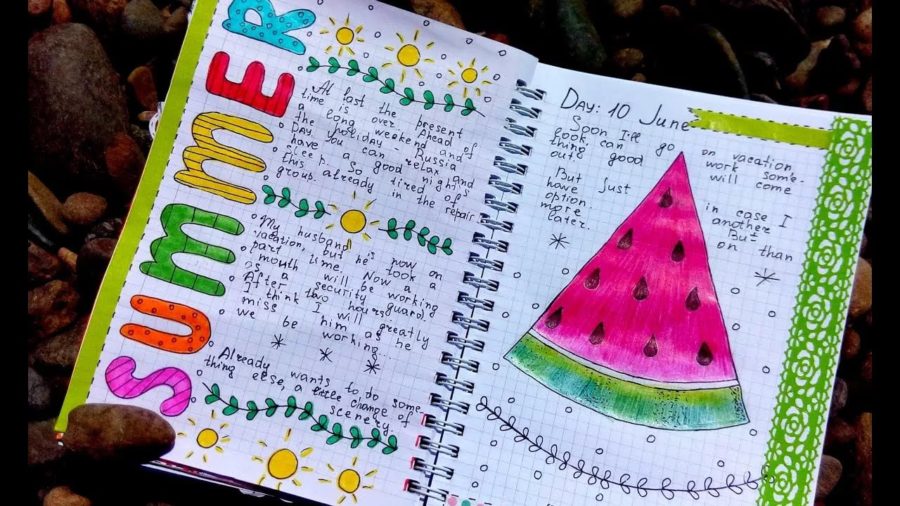 SUMMER
At last the present
time is over. Ahead of
the long weekend and
a holiday Russia
Day you can relax and
have a good night's
sleep. So tired of
this already in the repair
group.
My husband is now on
vacation, but he took a
part time. Now a
mouth will be working
as a security guard.
After two hours
It think I will greatly
miss him as he
we be working...
Already wants to do some-
thing else, a little change of
scenery.
Day: 10 June
Soon I'll go on vacation
look, can work some-
thing good will come
out.
But just in case I
have another
option. But
more on than
later.